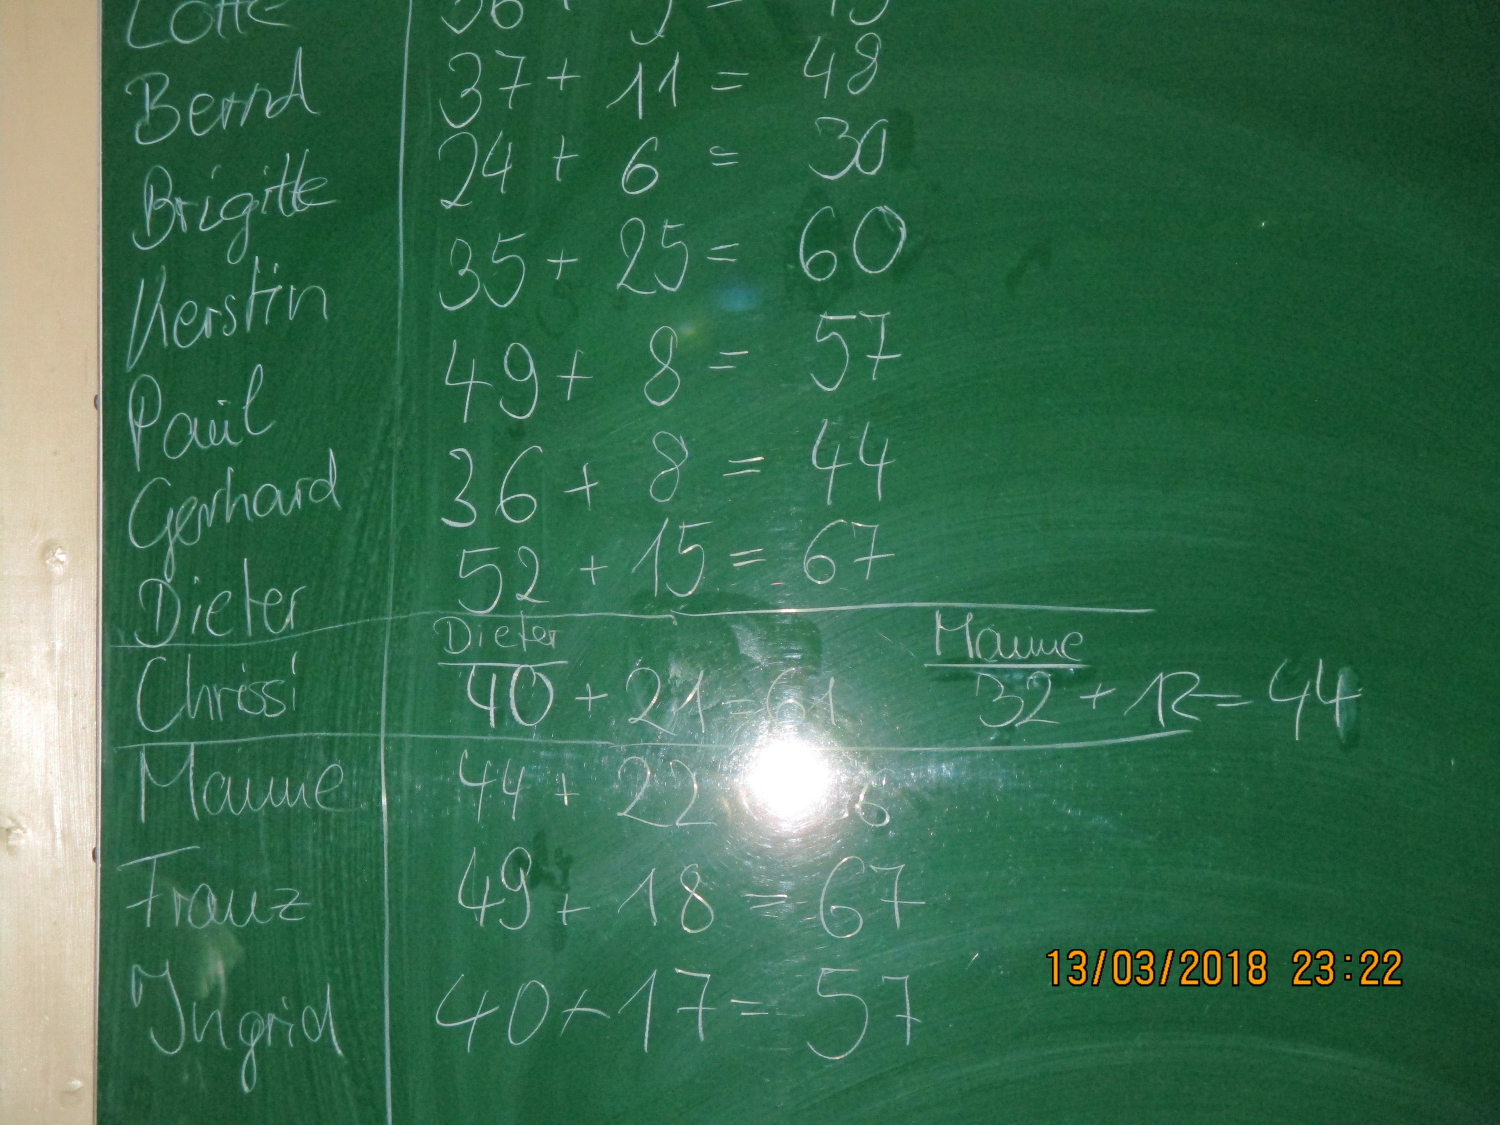 Lotte 36 + 9 = 45
Bernd 37 + 11 = 48
Brigitte 24 + 6 = 30
Kerstin 35 + 25 = 60
Paul 49 + 8 = 57
Gerhard 36 + 8 = 44
Dieter 52 + 15 = 67
Dieter Manne
Chrissi 40 + 21 = 61 32 + 12 = 44
Manne 44 + 22 6
Franz 49 + 18 = 67
Ingrid 40 + 17 = 57
13/03/2018 23:22